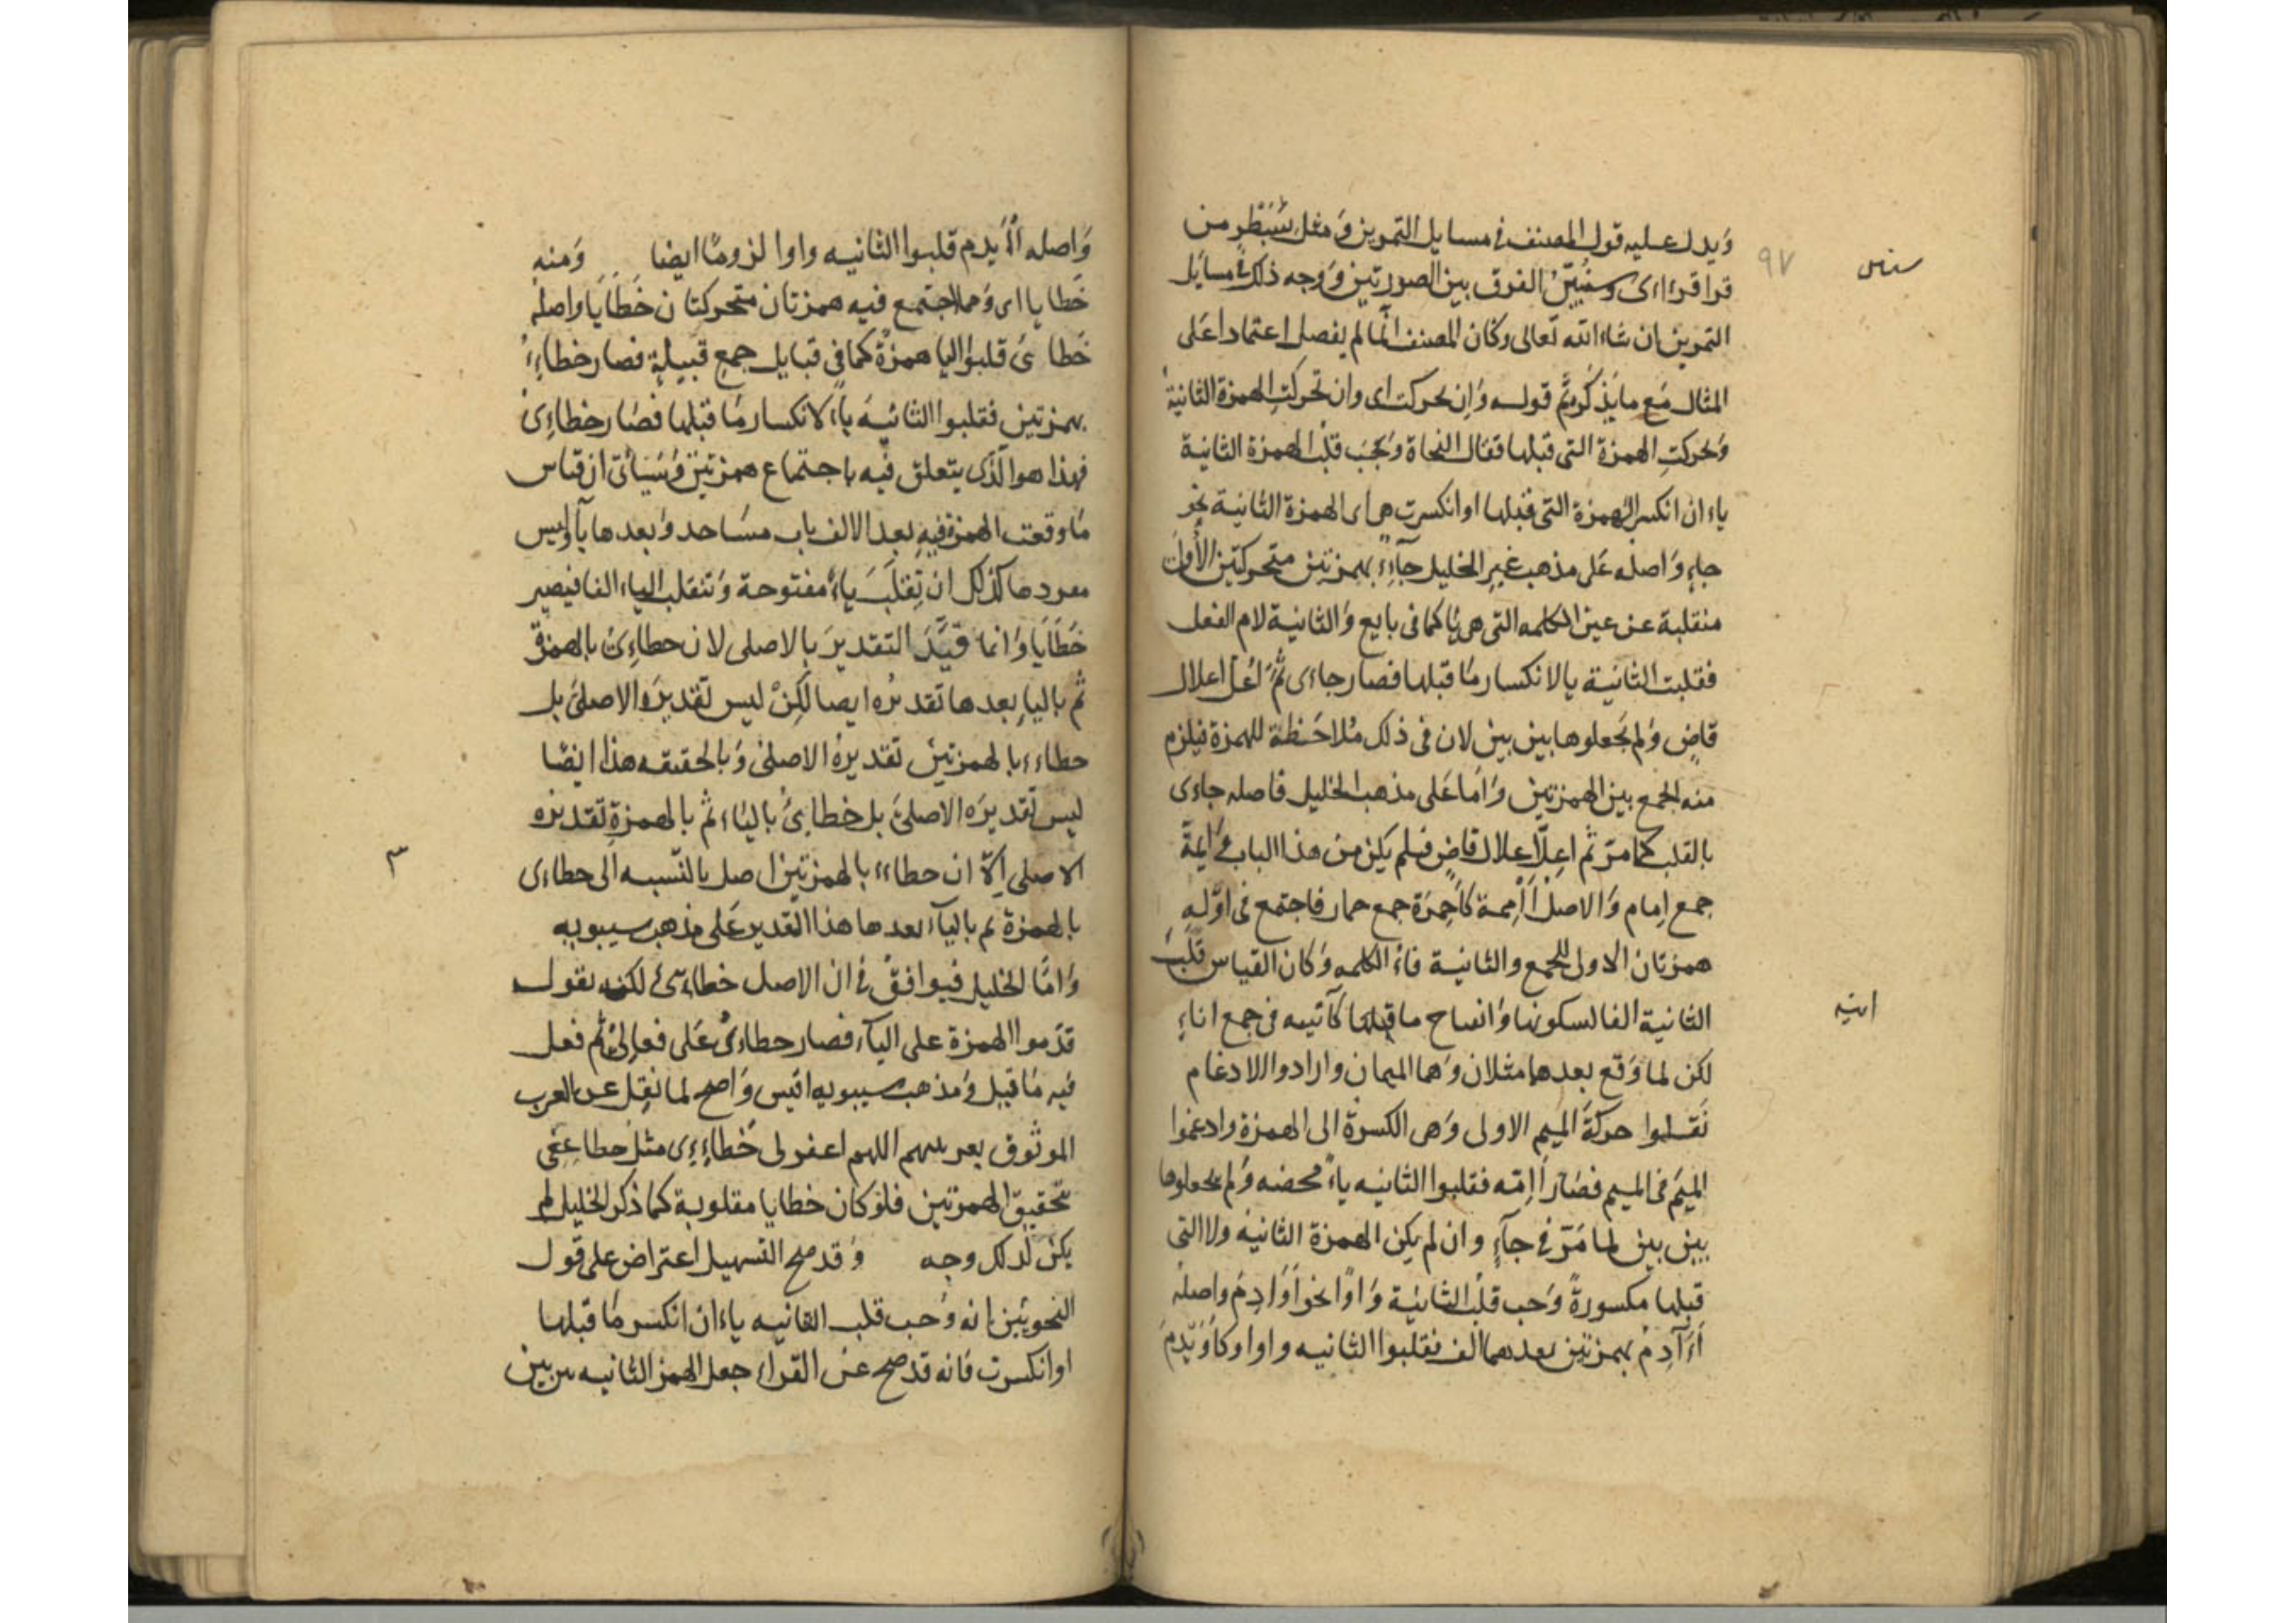 ويدل عليه قول المصنف في مسايل التمرين ومثل سبطر من
قرا قرءاى وسنبين الفرق بين الصورتين ووجه ذلك في مسايل
التمرين ان شاء الله تعالى وكان المصنف انما لم يفصل اعتمادا على
المثال مع ما يذكر ثم قوله وان تحركت اى وان تحركت الهمزة الثانية
وتحركت الهمزة التى قبلها فقال النحاة وجب قلب الهمزة الثانية
ياء ان انكسر الهمزة التى قبلها او انكسرت هى اى الهمزة الثانية نحو
جاء واصله على مذهب غير الخليل جآءء بهمزتين متحركتين الأولى
منقلبة عن عين الكلمه التى هى يا كما فى بايع والثانية لام الفعل
فقلبت الثانية يا لانكسار ما قبلها فصار جاءى ثم اعل اعلال
قاض ولم يجعلوها بين بين لان فى ذلك ملاحظة للهمزة فيلزم
منه الجمع بين الهمزتين واما على مذهب الخليل فاصله جاءى
بالقلب كما مر ثم اعل اعلال قاض فلم يكن من هذا الباب و ايمة
جمع إمام والاصل أأممة كأحمرة جمع حمار فاجتمع فى اوله
همزتان الاولى للجمع والثانية فاء الكلمه وكان القياس قلب
الثانية الفا لسكونها وانفتاح ما قبلها كآنيه فى جمع اناء
لكن لما وقع بعدها مثلان وهما الميمان وارادوا الادغام
نقلوا حركة الميم الاولى وهى الكسرة الى الهمزة وادغموا
الميم فى الميم فصار أإمه فقلبوا الثانيه ياء محضه ولم يجعلوها
بين بين لما مر فى جآء وان لم يكن الهمزة الثانيه ولا التى
قبلها مكسورة وجب قلب الثانية واوا نحو أوادم واصله
أءآدم بهمزتين بعدهما الف فقلبوا الثانيه واوا وكأويدم
٩٧
انيه
واصله أأيدم قلبوا الثانيه واوا لزوما ايضا ومنه
خطايا اى ومما اجتمع فيه همزتان متحركتان خطايا واصله
خطا ئ قلبوا اليا همزة كما فى قبايل جمع قبيلة فصار خطاءء
بهمزتين فقلبوا الثانيه ياء لانكسار ما قبلها فصار خطاءى
فهذا هو الذى يتعلق فيه باجتماع همزتين وسياتى ان قياس
ما وقعت الهمزة فيه بعد الالف باب مساجد وبعدها يآ وليس
مفردها كذلك ان تقلب ياء مفتوحة وتنقلب الياء الفا فيصير
خطايا وانما قيد التقدير بالاصلى لان خطاءى بالهمزة
ثم باليا بعدها تقديره ايضا لكن ليس تقديره الاصلى بل
خطاءء بالهمزتين تقديره الاصلى وبالحقيقه هذا ايضا
ليس تقديره الاصلى بل خطايئ بالياء ثم بالهمزة تقديره
الاصلى إلا ان خطاءء بالهمزتين اصل بالنسبه الى خطاءى
بالهمزة ثم باليآء بعدها هذا التقدير على مذهب سيبويه
واما الخليل فيوافق فى ان الاصل خطايئ لكنه يقول
قدموا الهمزة على اليآء فصار خطاءى على فعالى ثم فعل
فيه ما قيل ومذهب سيبويه اقيس واصح لما نقل عن العرب
الموثوق بعربيتهم اللهم اغفر لى خطاءءى مثل خطاععى
بتحقيق الهمزتين فلو كان خطايا مقلوبة كما ذكر الخليل لم
يكن لذلك وجه وقد صح التسهيل اعتراض على قول
النحويين انه وجب قلب الثانيه ياء ان انكسر ما قبلها
او انكسرت فانه قد صح عن القراء جعل الهمز الثانيه بين بين
٣